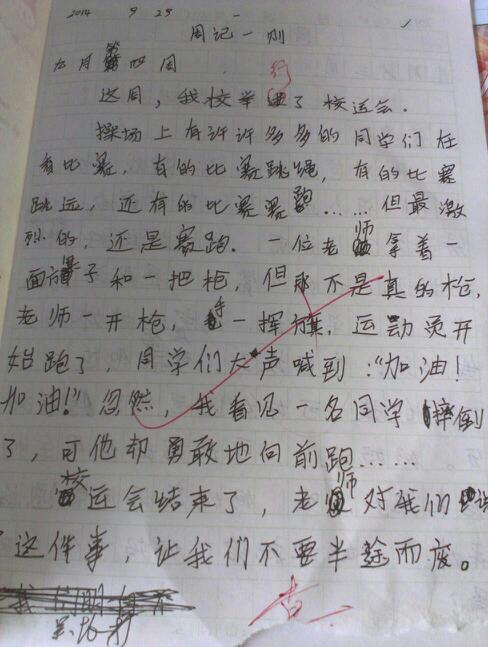 2014 9 25
周记一则
九月第四周
行
这周，我校举了校运会.
操场上有许许多多的同学们在
看比赛，有的比赛跳绳，有的比赛
跳远，还有的比赛赛跑……但最激
烈的，还是赛跑.一位老师拿着一
面旗子和一把枪，但那不是真的枪，
老师一开枪，手一挥，运动员开
始跑了，同学们大声喊到："加油！
加油！"忽然，我看见一名同学摔倒
了，可他却勇敢地向前跑……
校运会结束了，老师对我们说
这件事，让我们不要半途而废。
查